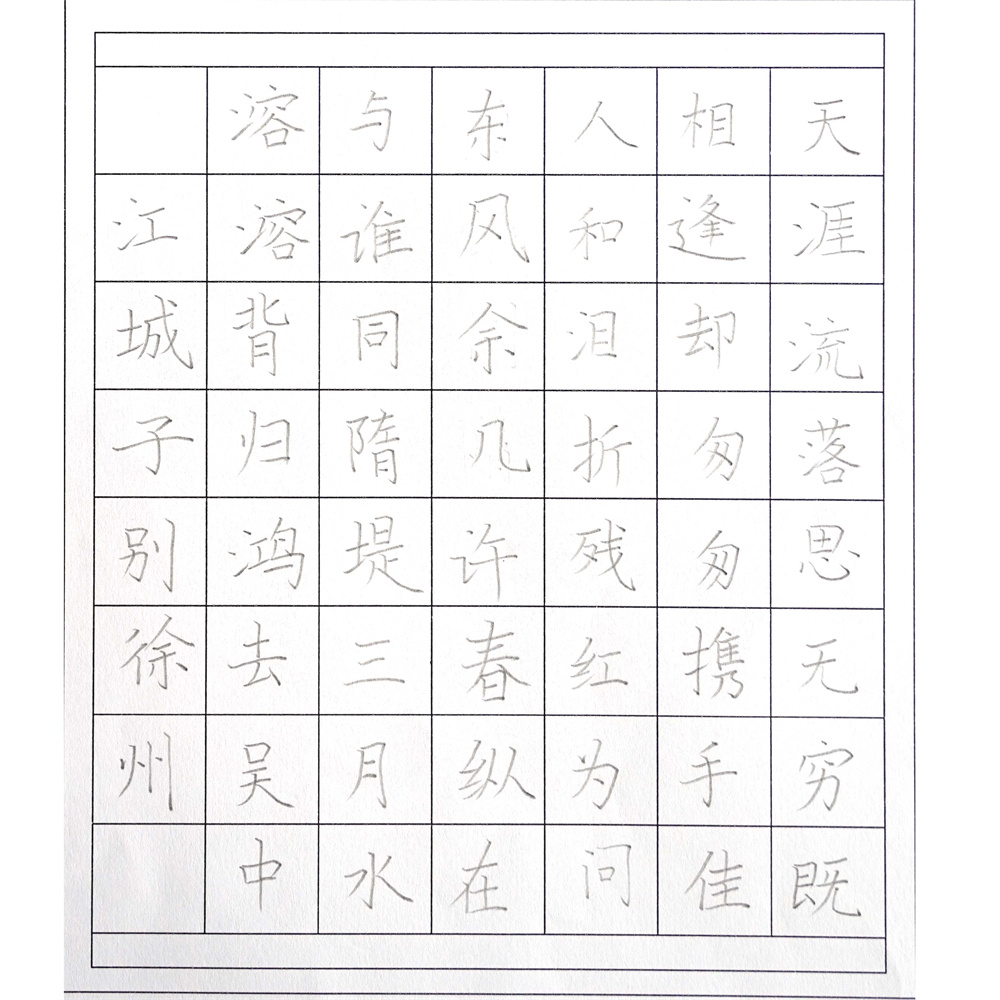 天涯流落思无穷既
相逢却匆匆携手佳
人和泪折残红为问
东风余几许春纵在
与谁同隋堤三月水
溶溶背归鸿去吴中
江城子别徐州